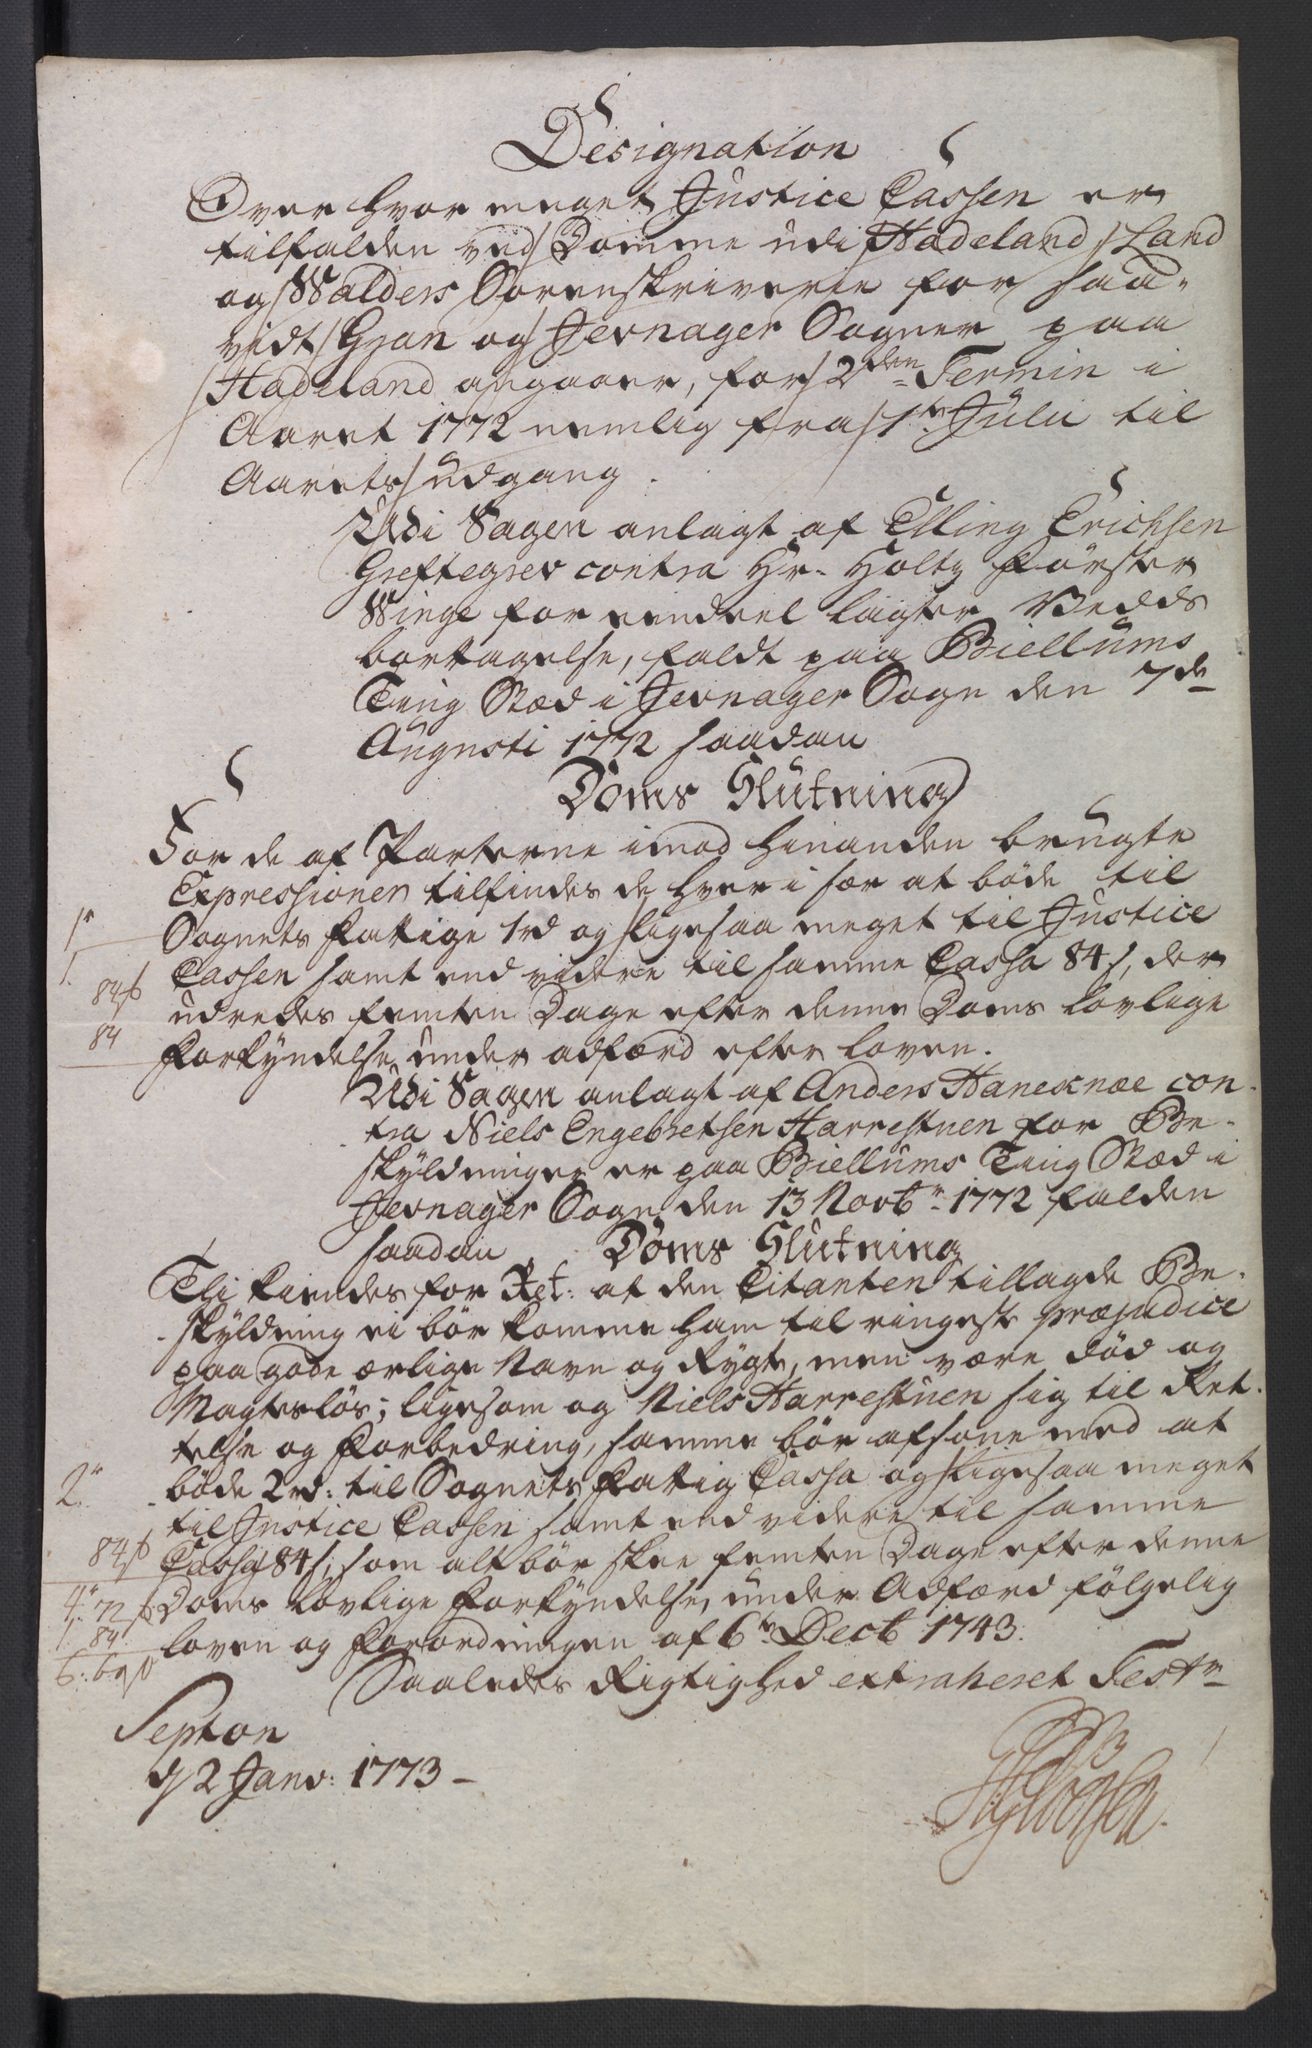 Designation
Over hvor meget Justice Cassen er
tilfalden ved Domme udi Hadeland, Land
og Walders Sorenskriverie for saa-
vidt Gran og Jevnager Sogner paa
Hadeland angaaer, for 2den Termin i
Aaret 1772 nemlig fra 1te Julii til
Aarets udgang.
Udi Sagen anlagt af Elling Erichsen
Greftegrev contra Hr. Holtz Förster
Winge for eendeel lagter Vedds
borttagelse, faldt paa Biellums
Ting Stæd i Jevnager Sogn den 7de
Augusti 1772 saadan
Doms Slutning
For de af Parterne imod hinanden brugte
Expressioner tilfindes de hver i sær at böde til
Sognets Fattige 1rd og ligesaa meget til Justice
Cassen samt end videre til samme Cassa 84s, der
udredes femten Dage efter denne Doms lovlige
Forkyndelse under adfærd efter loven.
1"
1.
84s
84
Udi Sagen anlagt af Anders Hanesknæ con-
tra Niels Engebretsen Harrestuen for Be-
skyldninger er paa Biellums Ting Stæd i
Jevnager Sogn den 13 Novbr 1772 falden
saadan Doms Slutning
Thi kiendes for Ret: at den Citanten tillagde Be-
skyldning ei bör komme ham til ringeste præjudice
paa gode ærlige Navn og Rygte, men være död og
Magteslös; ligesom og Niels Harrestuen sig til Ret-
telse og Forbedring, samme bör afsone med at
böde 2rd: til Sognets Fattig Cassa og ligesaa meget
til Justice Cassen samt end videre til samme
Cassa 84s, som alt bör skee femten Dage efter denne
Doms lovlige Forkyndelse, under Adfærd fölgelig
loven og Forordningen af 6te Decb 1743.
2"
84s
4" 72s
1. 84
6. 60s
Saaledes Rigtighed extraheret Test
Septon
d 2 Janv: 1773 -